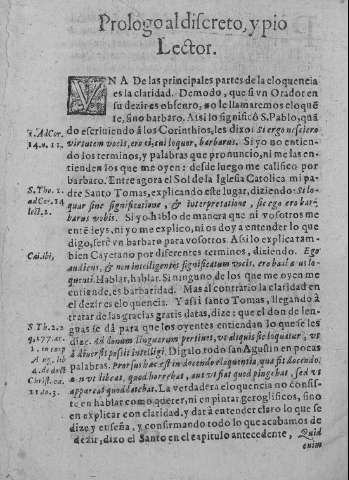 Prologo al discreto, y pio
Lector.
VNA De las principales partes de la eloquencia
es la claridad. De modo, que si vn Orador en
su dezir es obscuro, no le llamaremos eloquē
te, sino barbaro. Assi lo significò S. Pablo, quā
do escriuiendo à los Corinthios, les dixo: Si ergo nesciero
1. ad Cor.
14. n. 11.
virtutem vocis, ero ei, cui loquor, barbarus. Si yo no entien
do los terminos, y palabras que pronuncio, ni me las en-
tienden los que me oyen: desde luego me califico por
barbaro. Entre agora el Sol de la Iglesia Catolica mi pa-
S. Tho. 1.
ad Cor. 14
lect. 2.
dre Santo Tomas, explicando este lugar, diziendo: Si lo-
quar sine significatione, & interpretatione, sic ego ero bar-
barus vobis. Si yo hablo de manera que ni vosotros me
enteņdeys, ni yo me explico, ni os doy a entender lo que
digo, serè vn barbaro para vosotros. Assi lo explica tam-
Cai. ibi,
bien Cayetano por diferentes terminos, diziendo. Ego
audiens, & non intelligens significatum vocis, ero barbarus lo-
quenti. Hablar, hablar. Si ninguno de los que me oyen me
entiende, es barbaridad. Mas al contrario la claridad en
el dezir es eloquencia. Y assi santo Tomas, llegando à
tratar de las gracias gratis datas, dize: que el don de len-
S. Th. 2. 2
q. 177. ar.
1. in corp
guas se dà para que los oyentes entiendan lo que se les
dize. Ad donum linguarum pertinet, vt aliquis sic loquatur, vt
à diuersis possit intelligi. Digalo todo san Agustin en pocas
Aug. lib.
4. de doct
Christ. ca.
11. to. 3.
palabras. Prorsus haec est in docendo eloquentia, qua fit docendo,
non vt libeat, quod horrebat, aut vt fiat quod pingebat, sed vt
appareat quod latebat. La verdadera eloquencia no consis-
te en hablar como quiera, ni en pintar geroglificos, sino
en explicar con claridad, y dar à entender claro lo que se
dize, y enseña, y confirmando todo lo que acabamos de
dezir, dixo el Santo en el capitulo antecedente, Quid
enim